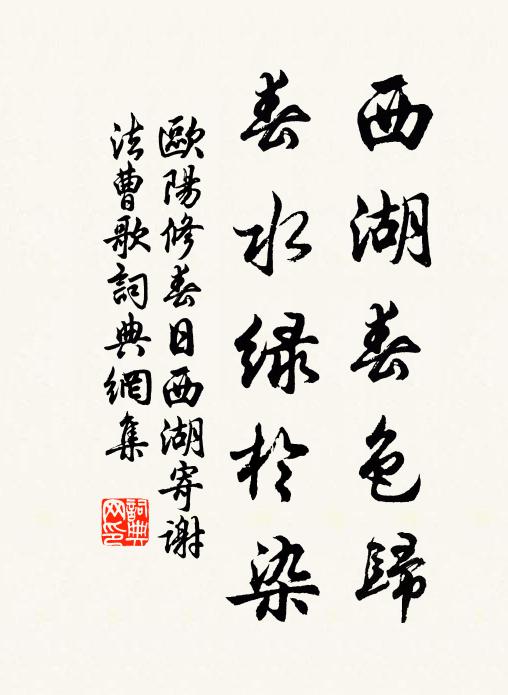 西湖春色歸
春水綠於染
歐陽修春日西湖寄謝
法曹歌詞典網集
詞典
网印